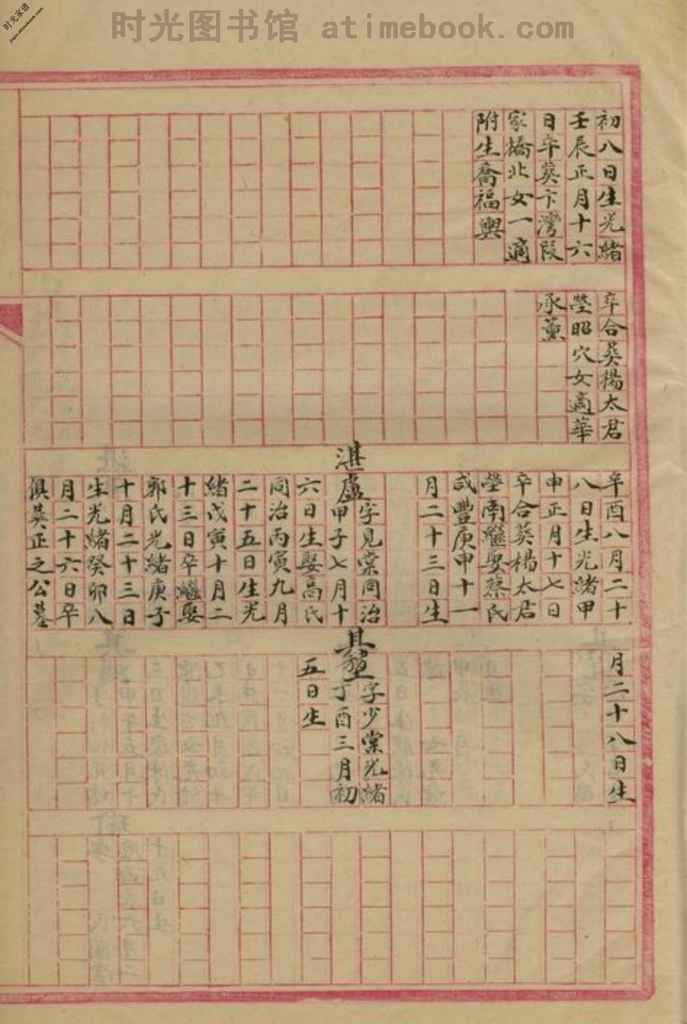 时光图书馆 atimebook.com
时光家谱
初八日生光緒
壬辰正月十六
日卒葬卞灣段
家橋北女一適
附生喬福興
卒合葬楊太君
塋昭穴女適華
承薰
辛酉八月二十
八日生光緒甲
申正月十七日
卒合葬楊太君
塋南繼娶蔡氏
咸豐庚申十一
月二十三日生
湛盧字見棠同治
甲子七月十
六日生娶高氏
同治丙寅九月
二十五日生光
緒戊寅十月二
十三日卒繼娶
郭氏光緒庚子
十月二十三日
生光緒癸卯八
月二十六日卒
俱葬正之公墓
月二十八日生
其 字少棠光緒
丁酉三月初
五日生